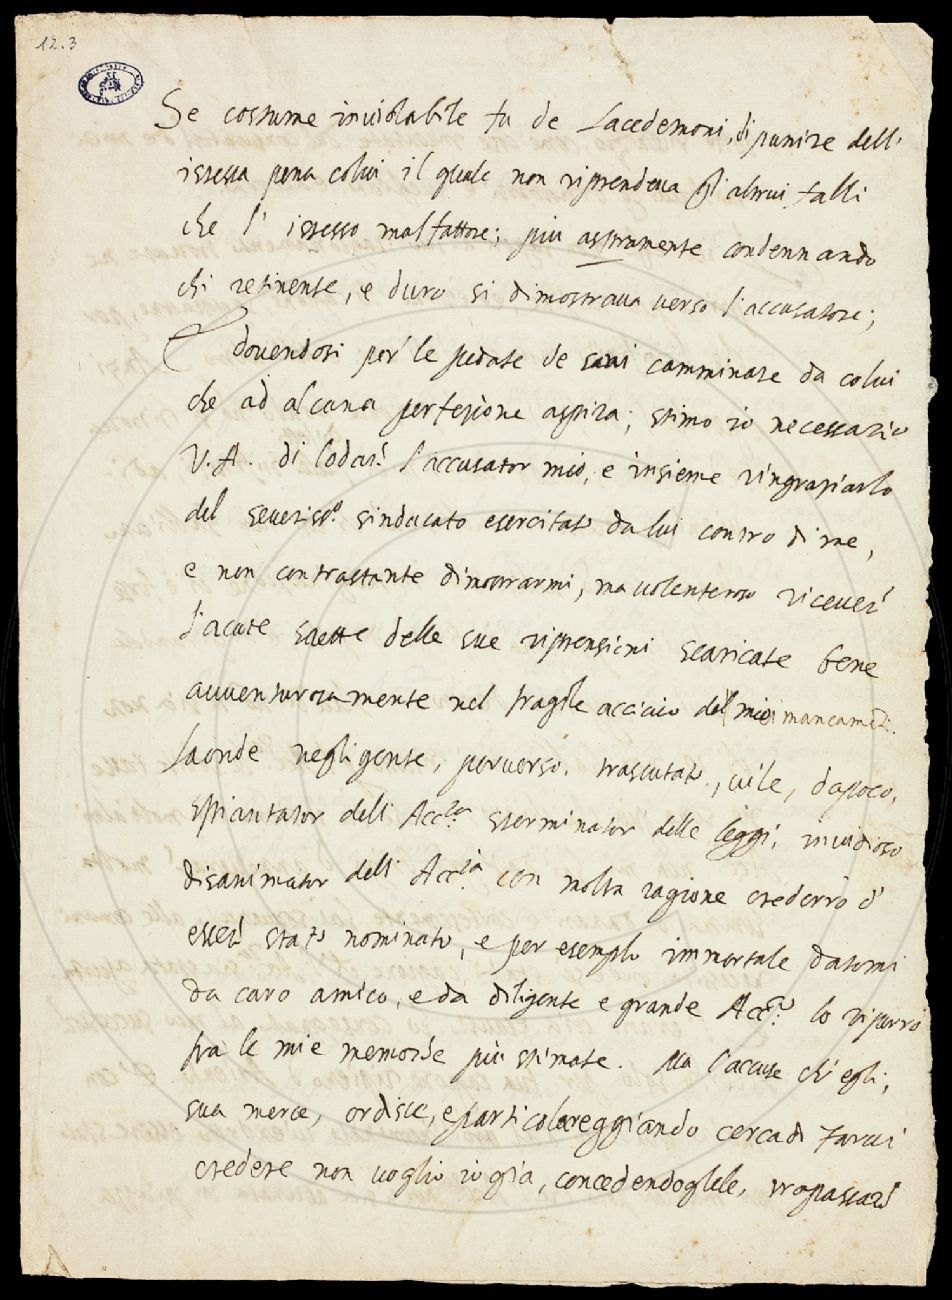 12.3
Se costume inviolabile fu de Lacedemoni, di punire dell'
istessa pena colui il quale non riprendeva gl'altrui falli
che l'istesso malfattore; più aspramente condennando
chi retinente, e duro si dimostrava verso l'accusatore;
E dovendosi per le pedate de savi camminare da colui
che ad alcuna perfezione aspira; stimo io necessario
V. A. di lodar l'accusator mio, e insieme ringraziarlo
del severiss.o sindacato esercitato da lui contro di me,
e non contrastante dimostrarmi, ma volenteroso ricever
l'acute saette delle sue riprensioni scaricate bene
avventurosamente nel fragile acciaio de miei mancamē.
Laonde negligente, perverso, trascutato, vile, dapoco,
spiantator dell' Acc.a sterminator delle leggi, invidioso
disanimator dell' Acc.ia con molta ragione crederrò d'
esser stato nominato, e per esemplo immortale datomi
da caro amico, e da diligente e grande Acc.co lo riporrò
fra le mie memorie più stimate. Ma l'accuse ch'egli,
sua merce, ordisce, e particolareggiando cerca di farvi
credere non voglio io già, concedendogliele, trapassar